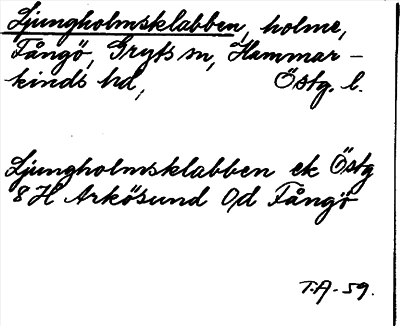 Ljungholmsklabben, holme,
Fångö, Gryts sn, Hammar-
kinds hd, Östg. l.
Ljungholmsklabben ek Östg
8 H Arkösund 0/d Fångö
T.A-59.